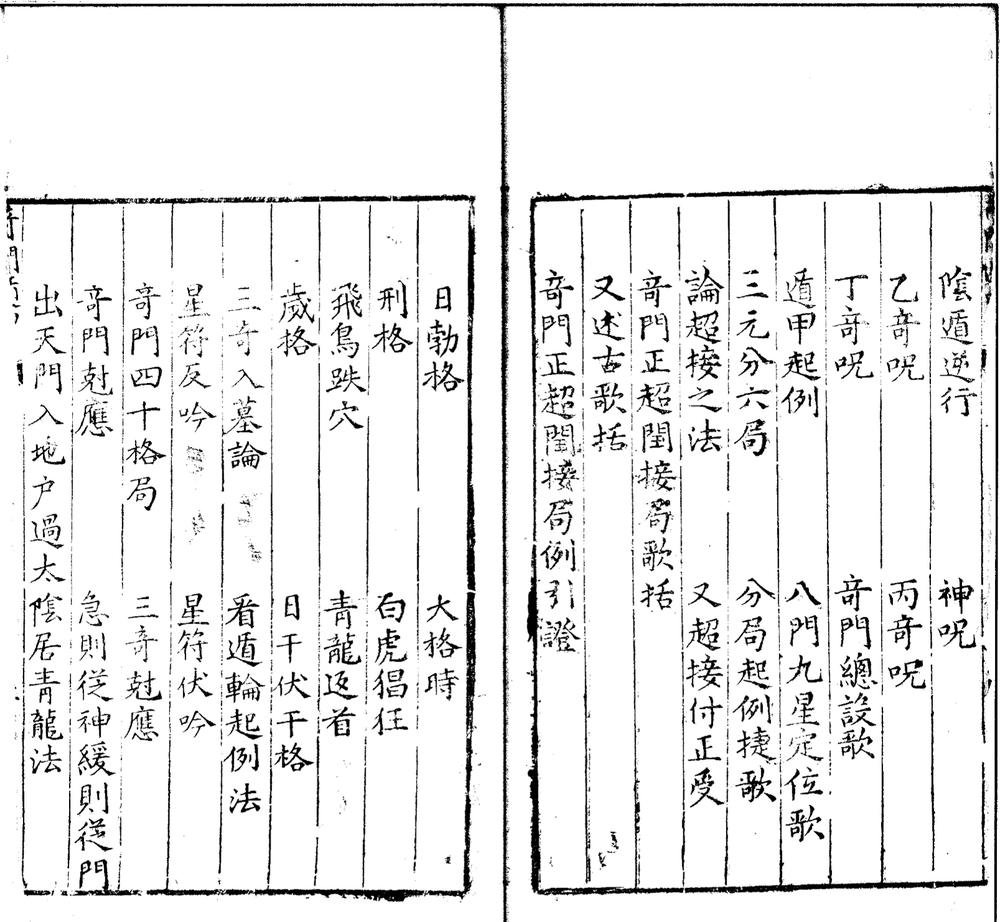 陰遁逆行　神呪
乙竒呪　丙竒呪
丁竒呪　竒門總設歌
遁甲起例　八門九星定位歌
三元分六局　分局起例捷歌
論超接之法　又超接付正受
竒門正超閏接局歌括
又述古歌括
竒門正超閏接局例引證
日勃格　大格時
刑格　白虎猖狂
飛鳥跌穴　青龍返首
歲格　日干伏干格
三竒入墓論　看遁輪起例法
星符反吟　星符伏吟
竒門四十格局　三竒尅應
竒門尅應　急則從神緩則從門
出天門入地户過太陰居青龍法